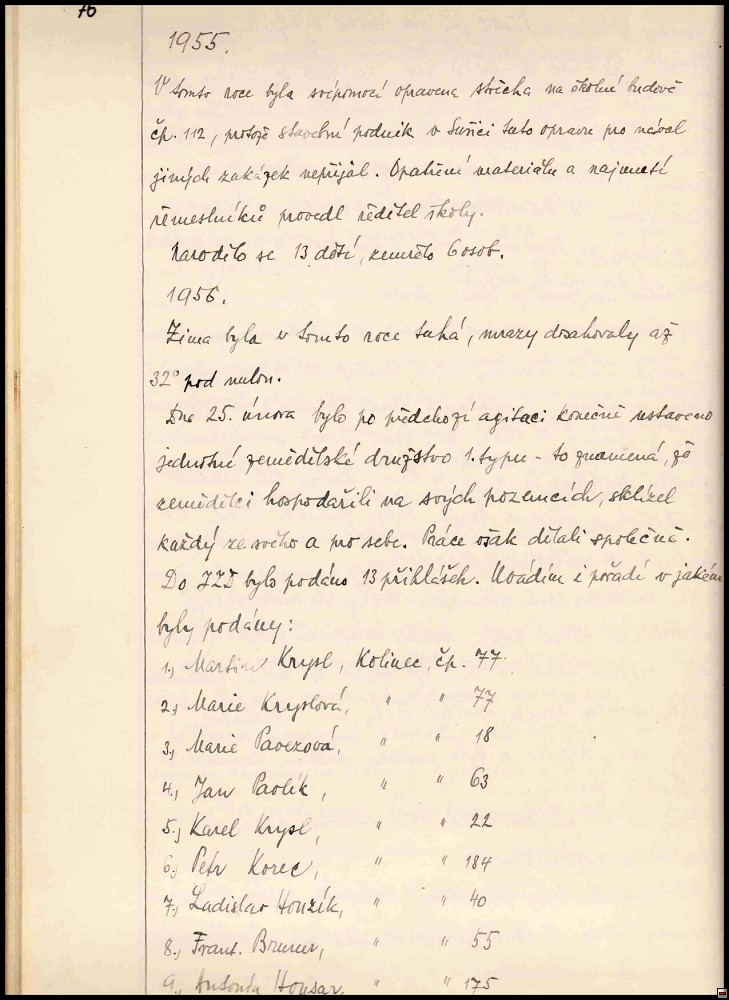 76
1955.
V tomto roce byla svépomocí opravena střecha na školní budově
čp. 112, protože stavební podnik v Sušici tuto opravu pro nával
jiných zakázek nepřijal. Opatření materiálu a najmutí
řemeslníků provedl ředitel školy.
Narodilo se 13 dětí, zemřelo 6 osob.
1956.
Zima byla v tomto roce tuhá, mrazy dosahovaly až
32° pod nulou.
Dne 25. února bylo po předchozí agitaci konečně ustaveno
jednotné zemědělské družstvo 1. typu - to znamená, že
zemědělci hospodařili na svých pozemcích, sklízel
každý ze svého a pro sebe. Práce však dělali společně.
Do JZD bylo podáno 13 přihlášek. Uvádím i pořadí v jakém
byly podány:
1., Martin Krysl, Kolinec, čp. 77.
2., Marie Kryslová, " " 77
3., Marie " " 18
4., Jan Pavlík, " " 63
5., Karel Krysl, " " 22
6., Petr Korec, " " 184
7., Ladislav Houzík, " " 40
8., Frant. Bruner, " " 55
9., Antonín " " 175